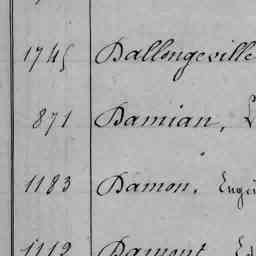 1745 Dallongeville
871 Damian, L
1183 Damon, Eugè
1112 Damont, Ed